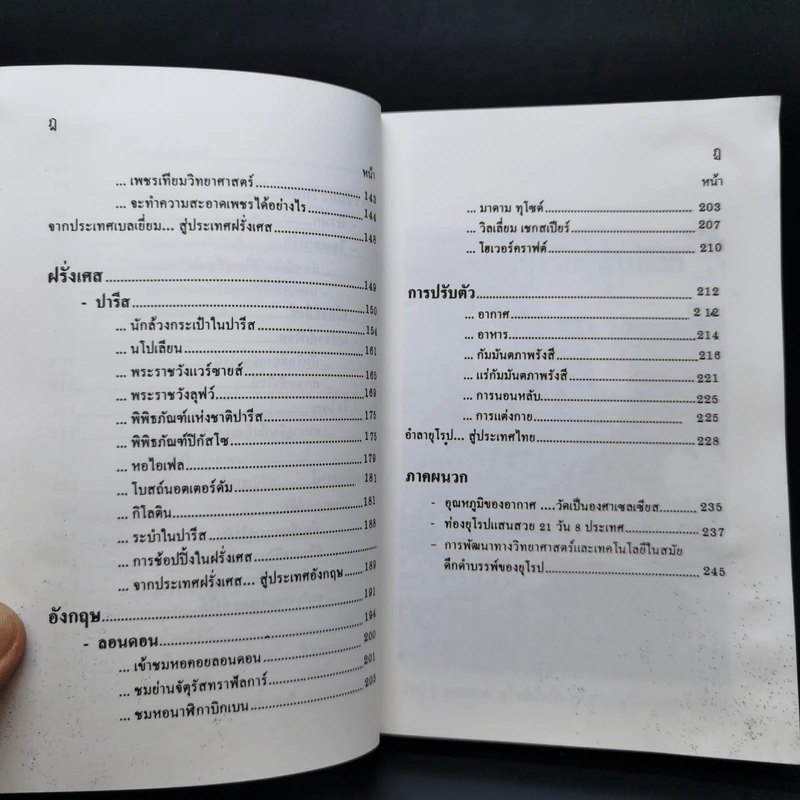 ฎ
หน้า
... เพชรเทียมวิทยาศาสตร์ 143
... จะทำความสะอาดเพชรได้อย่างไร 144
จากประเทศเบลเยี่ยม... สู่ประเทศฝรั่งเศส 148
ฝรั่งเศส 149
- ปารีส 150
... นักล้วงกระเป๋าในปารีส 154
... นโปเลียน 161
... พระราชวังแวร์ซายส์ 165
... พระราชวังลูฟว์ 169
... พิพิธภัณฑ์แห่งชาติปารีส 175
... พิพิธภัณฑ์ปิกัสโซ 175
... หอไอเฟล 179
... โบสถ์นอตเตอร์ดัม 181
... กิโลติน 181
... ระบำในปารีส 188
... การช้อปปิ้งในฝรั่งเศส
... จากประเทศฝรั่งเศส... สู่ประเทศอังกฤษ 189
อังกฤษ 191
- ลอนดอน 194
... เข้าชมหอคอยลอนดอน 200
... ชมย่านจัตุรัสทราฟัลการ์ 201
... ชมหอนาฬิกาบิกเบน 203
ฏ
หน้า
... มาดาม ทุโซด์ 203
... วิลเลี่ยม เชกสเปียร์ 207
... โฮเวอร์คราฟต์ 210
การปรับตัว 212
... อากาศ 212
... อาหาร 214
... กัมมันตภาพรังสี 216
... แร่กัมมันตภาพรังสี 221
... การนอนหลับ 225
... การแต่งกาย 225
อำลายุโรป... สู่ประเทศไทย 228
ภาคผนวก
- อุณหภูมิของอากาศ ....วัดเป็นองศาเซลเซียส 235
- ท่องยุโรปแสนสวย 21 วัน 8 ประเทศ 237
- การพัฒนาทางวิทยาศาสตร์และเทคโนโลยีในสมัย
ดึกดำบรรพ์ของยุโรป 245